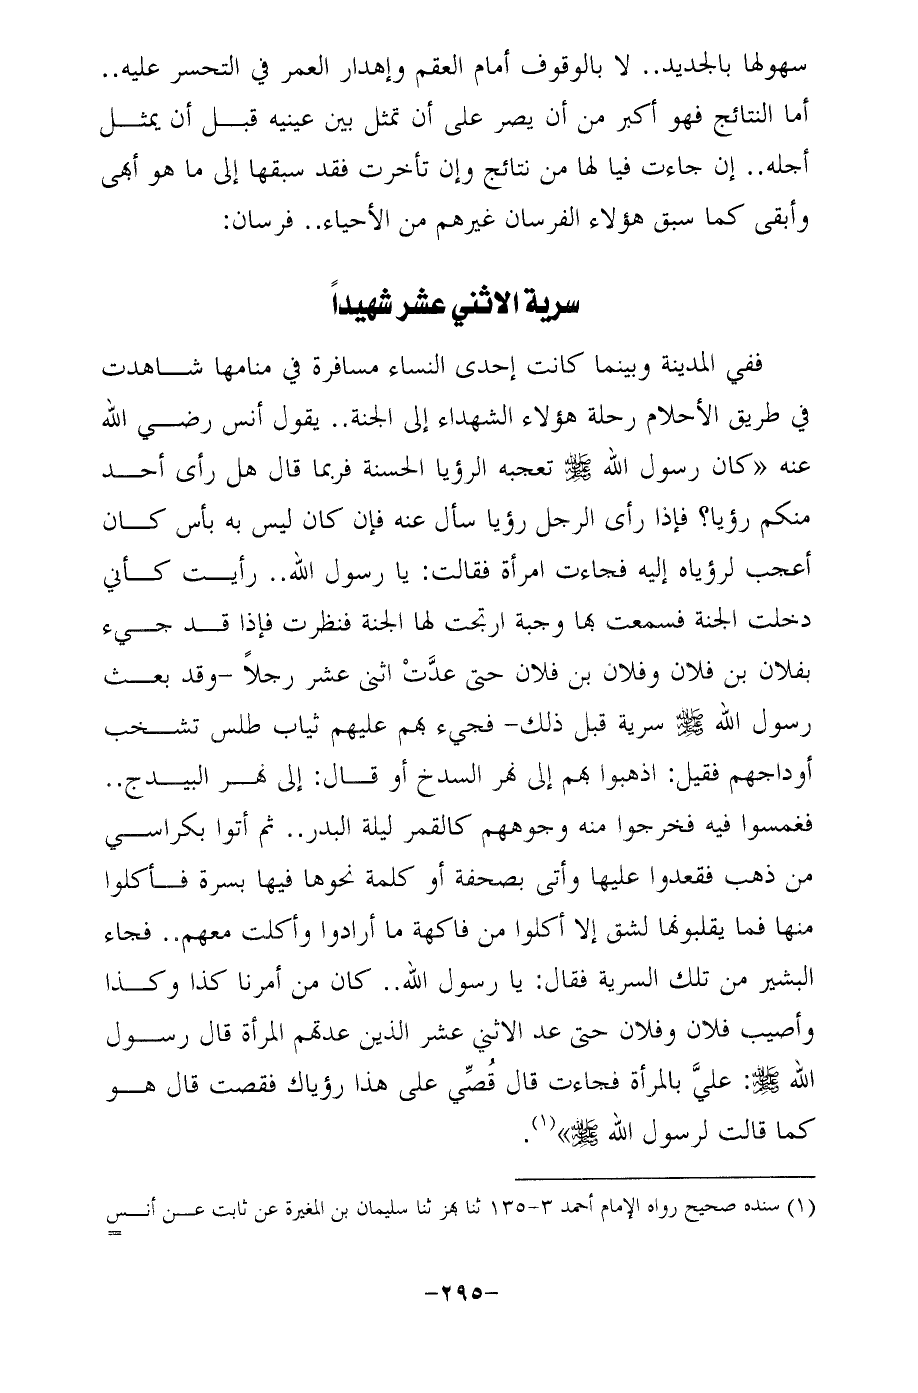 سهولها بالجديد.. لا بالوقوف أمام العقم وإهدار العمر في التحسر عليه..
أما النتائج فهو أكبر من أن يصر على أن تمثل بين عينيه قبل أن يمثل
أجله.. إن جاءت فيا لها من نتائج وإن تأخرت فقد سبقها إلى ما هو أبهى
وأبقى كما سبق هؤلاء الفرسان غيرهم من الأحياء.. فرسان:
سرية الاثني عشر شهيداً
ففي المدينة وبينما كانت إحدى النساء مسافرة في منامها شاهدت
في طريق الأحلام رحلة هؤلاء الشهداء إلى الجنة.. يقول أنس رضي الله
عنه «كان رسول الله ﷺ تعجبه الرؤيا الحسنة فربما قال هل رأى أحد
منكم رؤيا؟ فإذا رأى الرجل رؤيا سأل عنه فإن كان ليس به بأس كان
أعجب لرؤياه إليه فجاءت امرأة فقالت: يا رسول الله.. رأيت كأني
دخلت الجنة فسمعت بها وجبة ارتجت لها الجنة فنظرت فإذا قد جيء
بفلان بن فلان وفلان بن فلان حتى عدَّتْ اثنى عشر رجلاً -وقد بعث
رسول الله ﷺ سرية قبل ذلك- فجيء بهم عليهم ثياب طلس تشخب
أوداجهم فقيل: اذهبوا بهم إلى نهر السدخ أو قال: إلى نهر البيدج..
فغمسوا فيه فخرجوا منه وجوههم كالقمر ليلة البدر.. ثم أتوا بكراسي
من ذهب فقعدوا عليها وأتى بصحفة أو كلمة نحوها فيها بسرة فأكلوا
منها فما يقلبونها لشق إلا أكلوا من فاكهة ما أرادوا وأكلت معهم.. فجاء
البشير من تلك السرية فقال: يا رسول الله.. كان من أمرنا كذا وكذا
وأصيب فلان وفلان حتى عد الاثني عشر الذين عدتهم المرأة قال رسول
الله ﷺ: عليَّ بالمرأة فجاءت قال قُصِّي على هذا رؤياك فقصت قال هو
كما قالت لرسول الله ﷺ»(١).
(١) سنده صحيح رواه الإمام أحمد ٣-١٣٥ ثنا بهز ثنا سليمان بن المغيرة عن ثابت عن أنس
=
-٢٩٥-